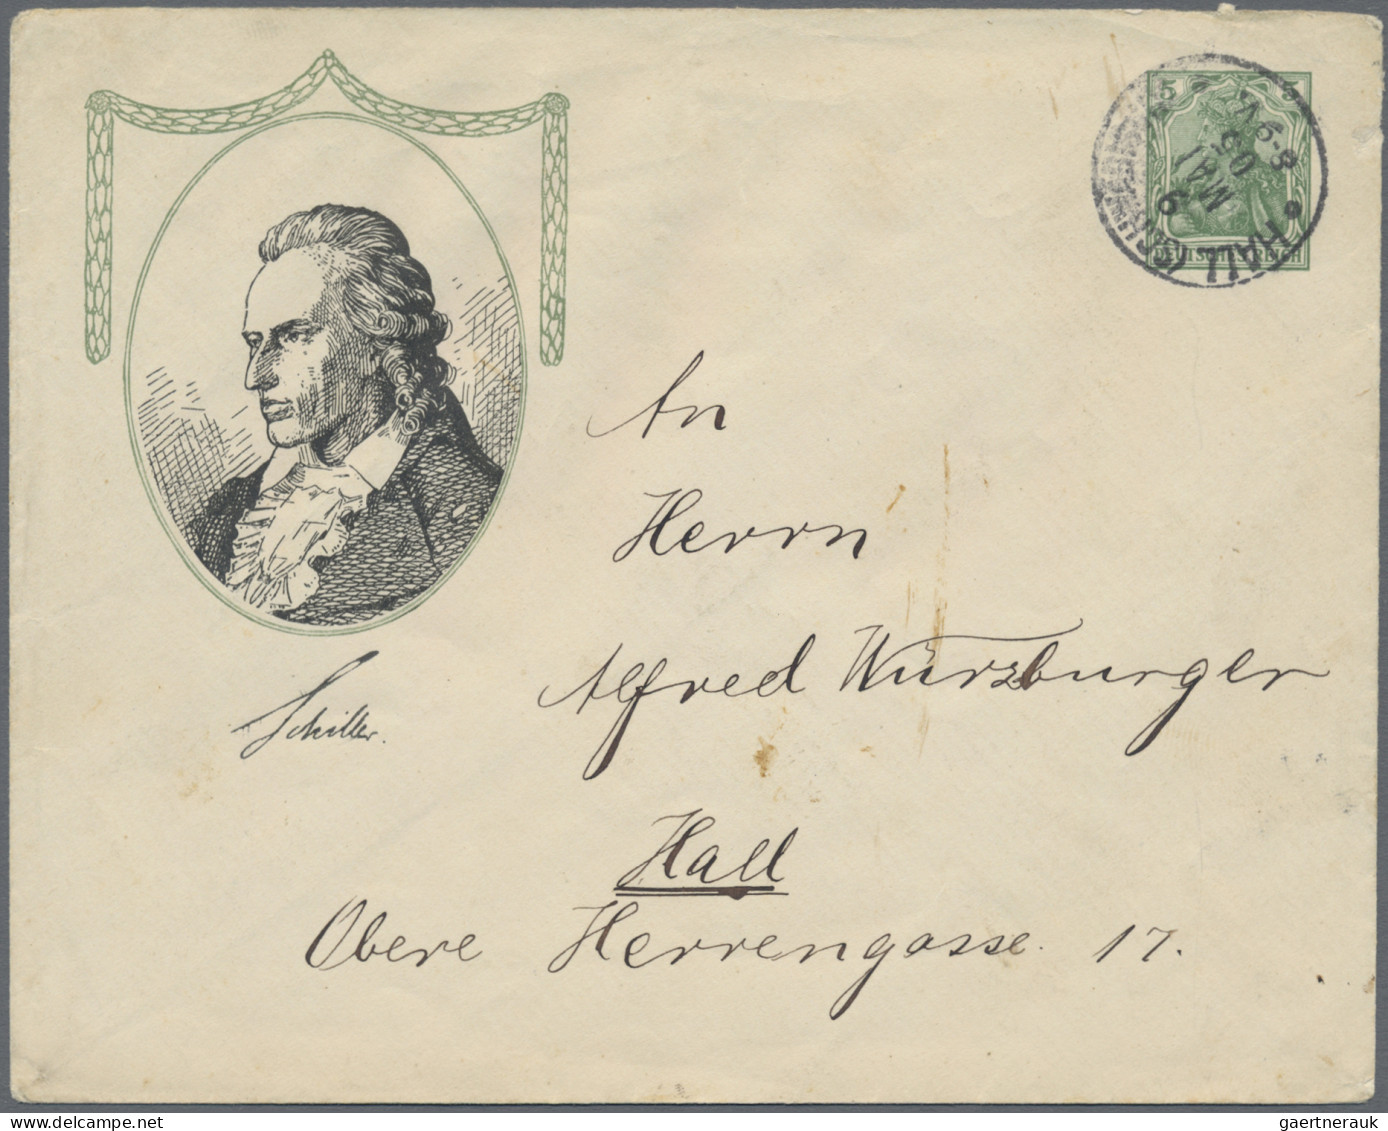 5 5
DEUTSCHES REICH
HALL
9
MAI
05
8-9 V.
Schiller.
An
Herrn
Alfred Würzburger
Hall
Obere Herrengasse 17.
gaertnerauk